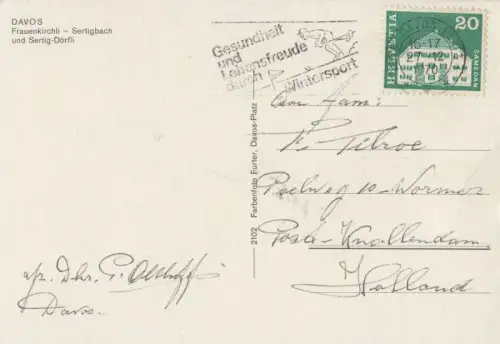 DAVOS
Frauenkirchli – Sertigbach
und Sertig-Dörfli
Gesundheit
und
Lebensfreude
durch
Wintersport
HELVETIA
20
SAMEDAN
16-17
27 12
70
2102 Farbenfoto Furter, Davos-Platz
Fam:
Poelweg 10 - Wormer
Post - Knollendam
Holland
afz. Dhr. G.
Davos.